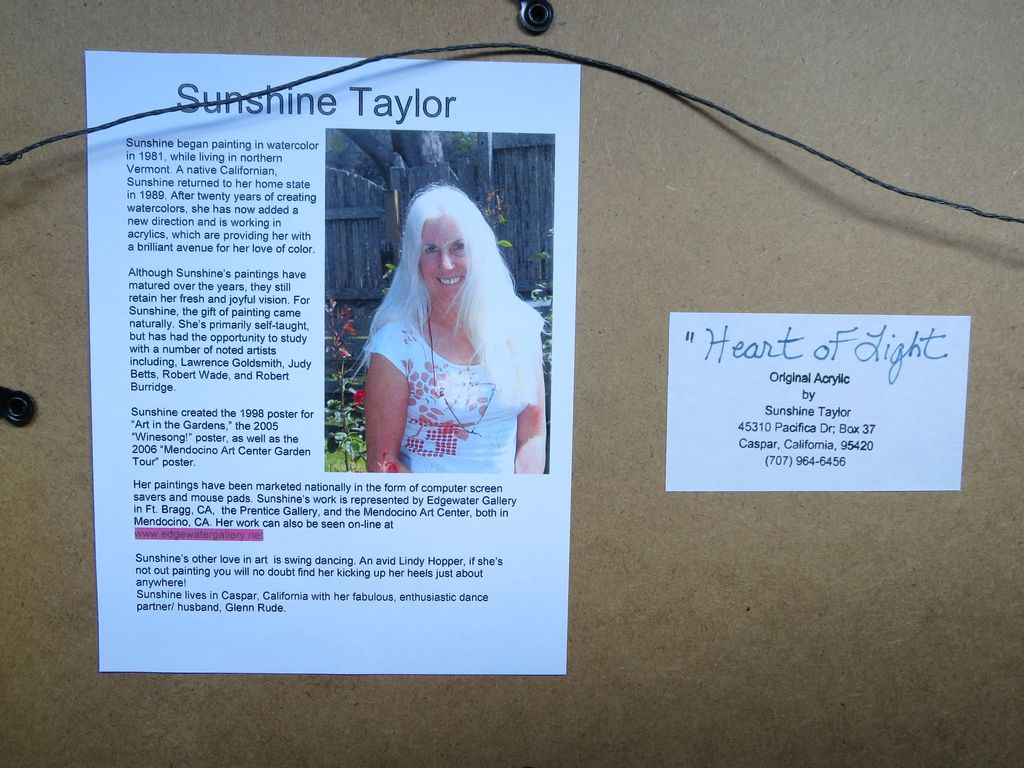 Sunshine Taylor
Sunshine began painting in watercolor
in 1981, while living in northern
Vermont. A native Californian,
Sunshine returned to her home state
in 1989. After twenty years of creating
watercolors, she has now added a
new direction and is working in
acrylics, which are providing her with
a brilliant avenue for her love of color.
Although Sunshine's paintings have
matured over the years, they still
retain her fresh and joyful vision. For
Sunshine, the gift of painting came
naturally. She's primarily self-taught,
but has had the opportunity to study
with a number of noted artists
including, Lawrence Goldsmith, Judy
Betts, Robert Wade, and Robert
Burridge.
Sunshine created the 1998 poster for
"Art in the Gardens," the 2005
"Winesong!" poster, as well as the
2006 "Mendocino Art Center Garden
Tour" poster.
Her paintings have been marketed nationally in the form of computer screen
savers and mouse pads. Sunshine's work is represented by Edgewater Gallery
in Ft. Bragg, CA, the Prentice Gallery, and the Mendocino Art Center, both in
Mendocino, CA. Her work can also be seen on-line at
www.edgewatergallery.net
Sunshine's other love in art is swing dancing. An avid Lindy Hopper, if she's
not out painting you will no doubt find her kicking up her heels just about
anywhere!
Sunshine lives in Caspar, California with her fabulous, enthusiastic dance
partner/ husband, Glenn Rude.
"Heart of Light
Original Acrylic
by
Sunshine Taylor
45310 Pacifica Dr; Box 37
Caspar, California, 95420
(707) 964-6456